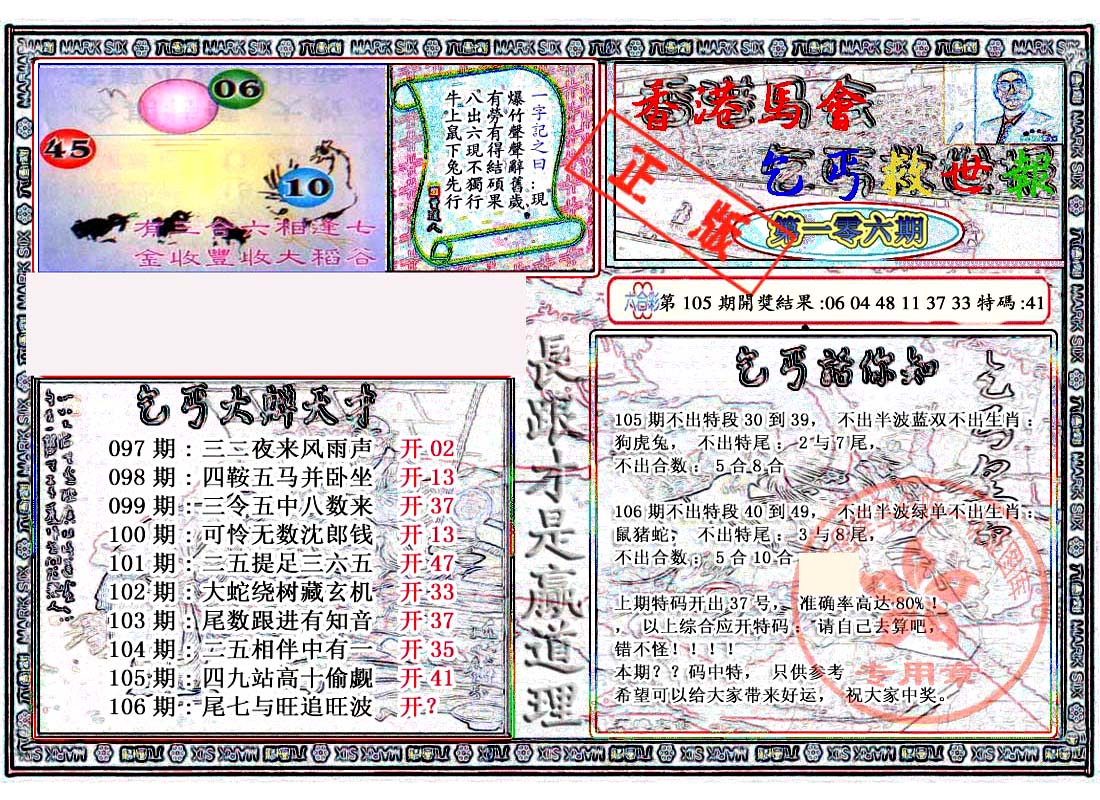 MARK SIX 六合彩
06
45
10
有二合六相逢七
金收豐收大稻谷
一字記之曰：現
爆竹聲聲辭舊歲
有勞有得結碩果
八出六現不獨行
牛上鼠下兔先行
香港馬會
乞丐救世報
第一零六期
正版
六合彩第 105 期開獎結果 :06 04 48 11 37 33 特碼 :41
乞丐大辦天才
097 期：三三夜来风雨声 开 02
098 期：四鞍五马并卧坐 开 13
099 期：三令五中八数来 开 37
100 期：可怜无数沈郎钱 开 13
101 期：三五提足三六五 开 47
102 期：大蛇绕树藏玄机 开 33
103 期：尾数跟进有知音 开 37
104 期：二五相伴中有一 开 35
105 期：四九站高十偷觑 开 41
106 期：尾七与旺追旺波 开？
長跟才是贏道理
乞丐話你知
105 期不出特段 30 到 39， 不出半波蓝双不出生肖：
狗虎兔， 不出特尾： 2 与 7尾，
不出合数： 5 合 8 合
106 期不出特段 40 到 49， 不出半波绿单不出生肖：
鼠猪蛇， 不出特尾： 3 与 8尾，
不出合数： 5 合 10 合
上期特码开出 37 号， 准确率高达 80%！
， 以上综合应开特码： 请自己去算吧，
错不怪！！！！
本期？？码中特， 只供参考
希望可以给大家带来好运， 祝大家中奖。
专用章